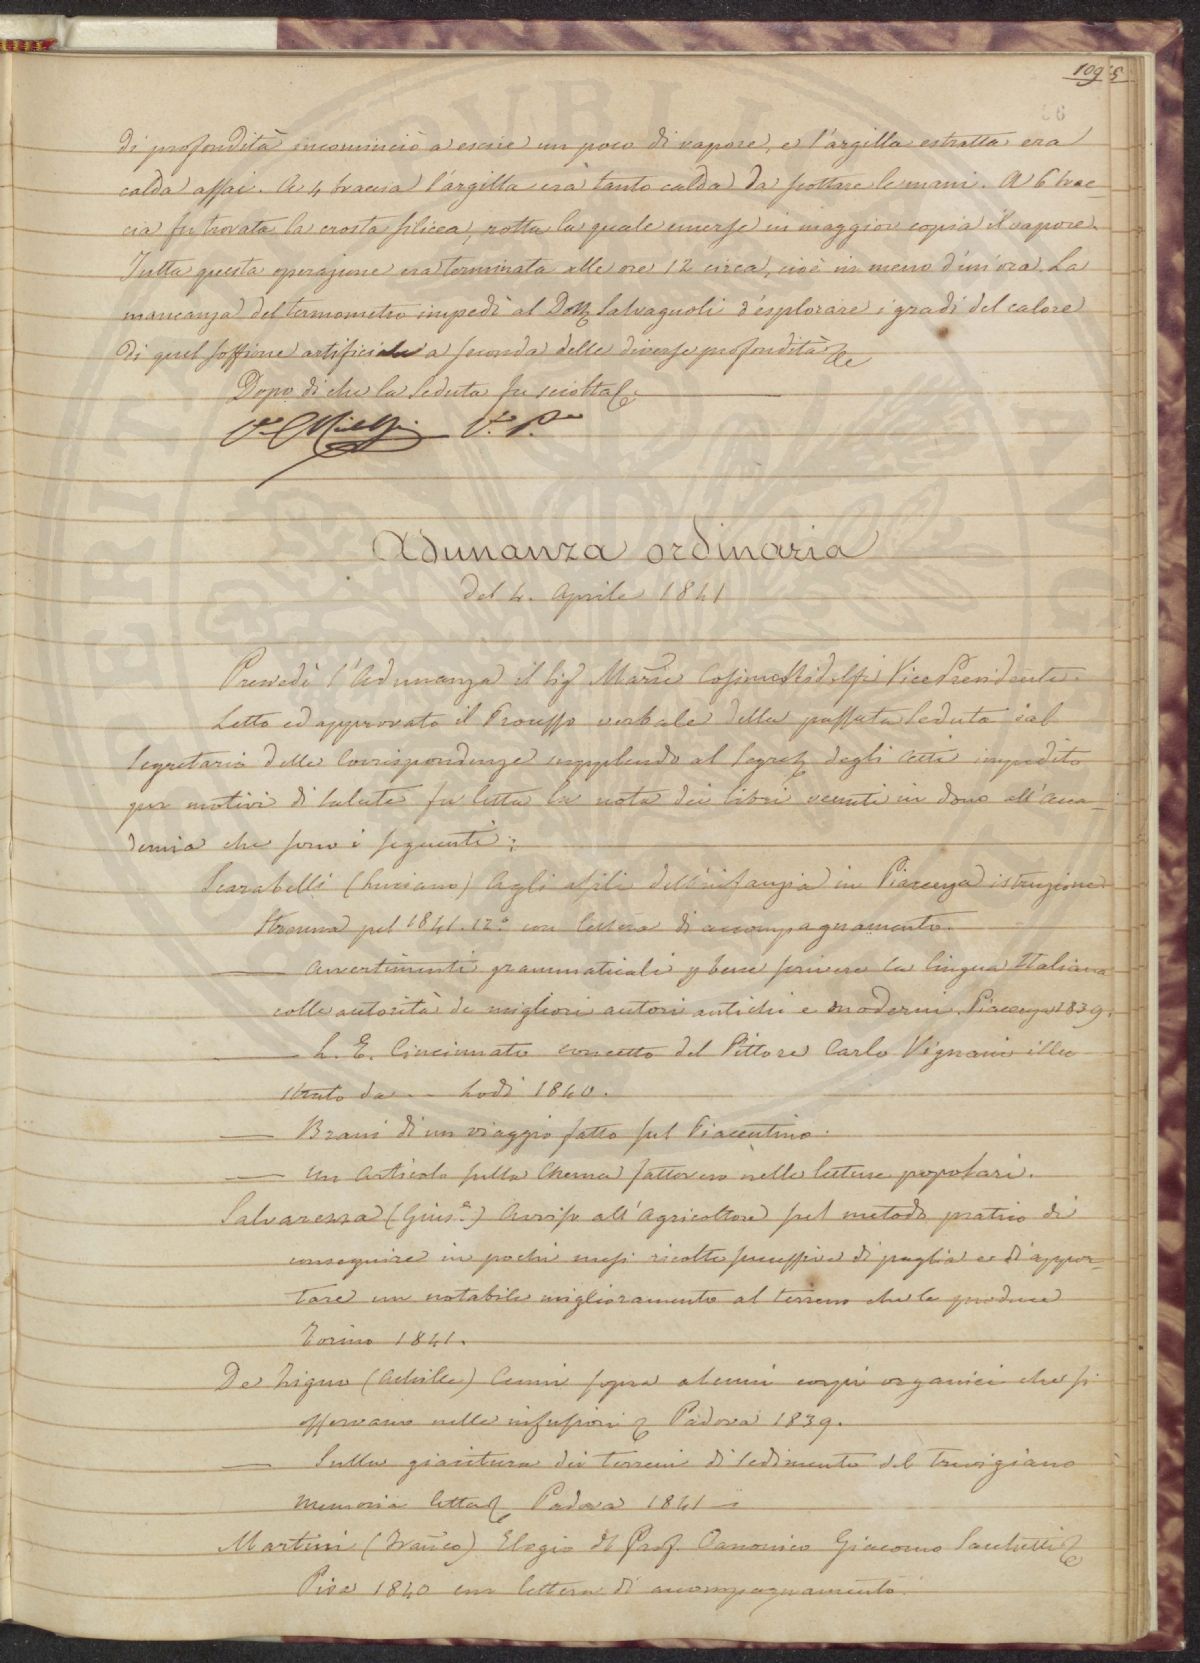 109
di profondità incominciò a escire un poco di vapore, e l'argilla estratta era
calda assai. A 4 braccia l'argilla era tanto calda da scottare le mani. A 6 brac-
cia fu trovata la crosta silicea, rotta la quale emerse in maggior copia il vapore.
Tutta questa operazione era terminata alle ore 12 circa, cioè in meno d'un'ora. La
mancanza del termometro impedì al Dott Salvagnoli d'esplorare i gradi del calore
di quel soffione artificiale a seconda delle diverse profondità &c
Dopo di che la Seduta fu sciolta.
V. P.
Adunanza ordinaria
del 4. Aprile 1841
Presiedè l'Adunanza il Sig Marse Cosimo Ridolfi Vice Presidente.
Letto ed approvato il Processo verbale della passata Seduta dal
Segretario delle Corrispondenze supplendo al Segret degli Atti impedito
per motivi di salute fu letta la nota dei libri venuti in dono all'Acca-
demia che sono i seguenti:
Scarabelli (Luciano) Agli asili dell'infanzia in Piacenza istruzione
Strenna pel 1841. 12° con lettera di accompagnamento.
— Avvertimenti grammaticali p bene scrivere la lingua Italiana
colle autorità de migliori autori antichi e moderni. Piacenza 1839.
— L. E. Cincinnato concetto del Pittore Carlo Vignani illu
strato da .. Lodi 1840.
— Brani di un viaggio fatto sul Piacentino.
— Un articolo sulla nelle letture popolari.
Salvarezza (Gius.e) Avviso all'Agricoltore sul metodo pratico di
conseguire in pochi mesi ricolte successive di paglia e di appor-
tare un notabile miglioramento al terreno che le produce
Torino 1841.
De Zigno (Achille) Cenni sopra alcuni corpi organici che si
osservano nelle infusioni & Padova 1839.
— Sulla giacitura dei terreni di sedimento del Trevigiano
Memoria letta & Padova 1841 —
Martini (Franco) Elogio del Prof. Canonico Giacomo Sacchetti &
Pisa 1840 con lettera di accompagnamento.